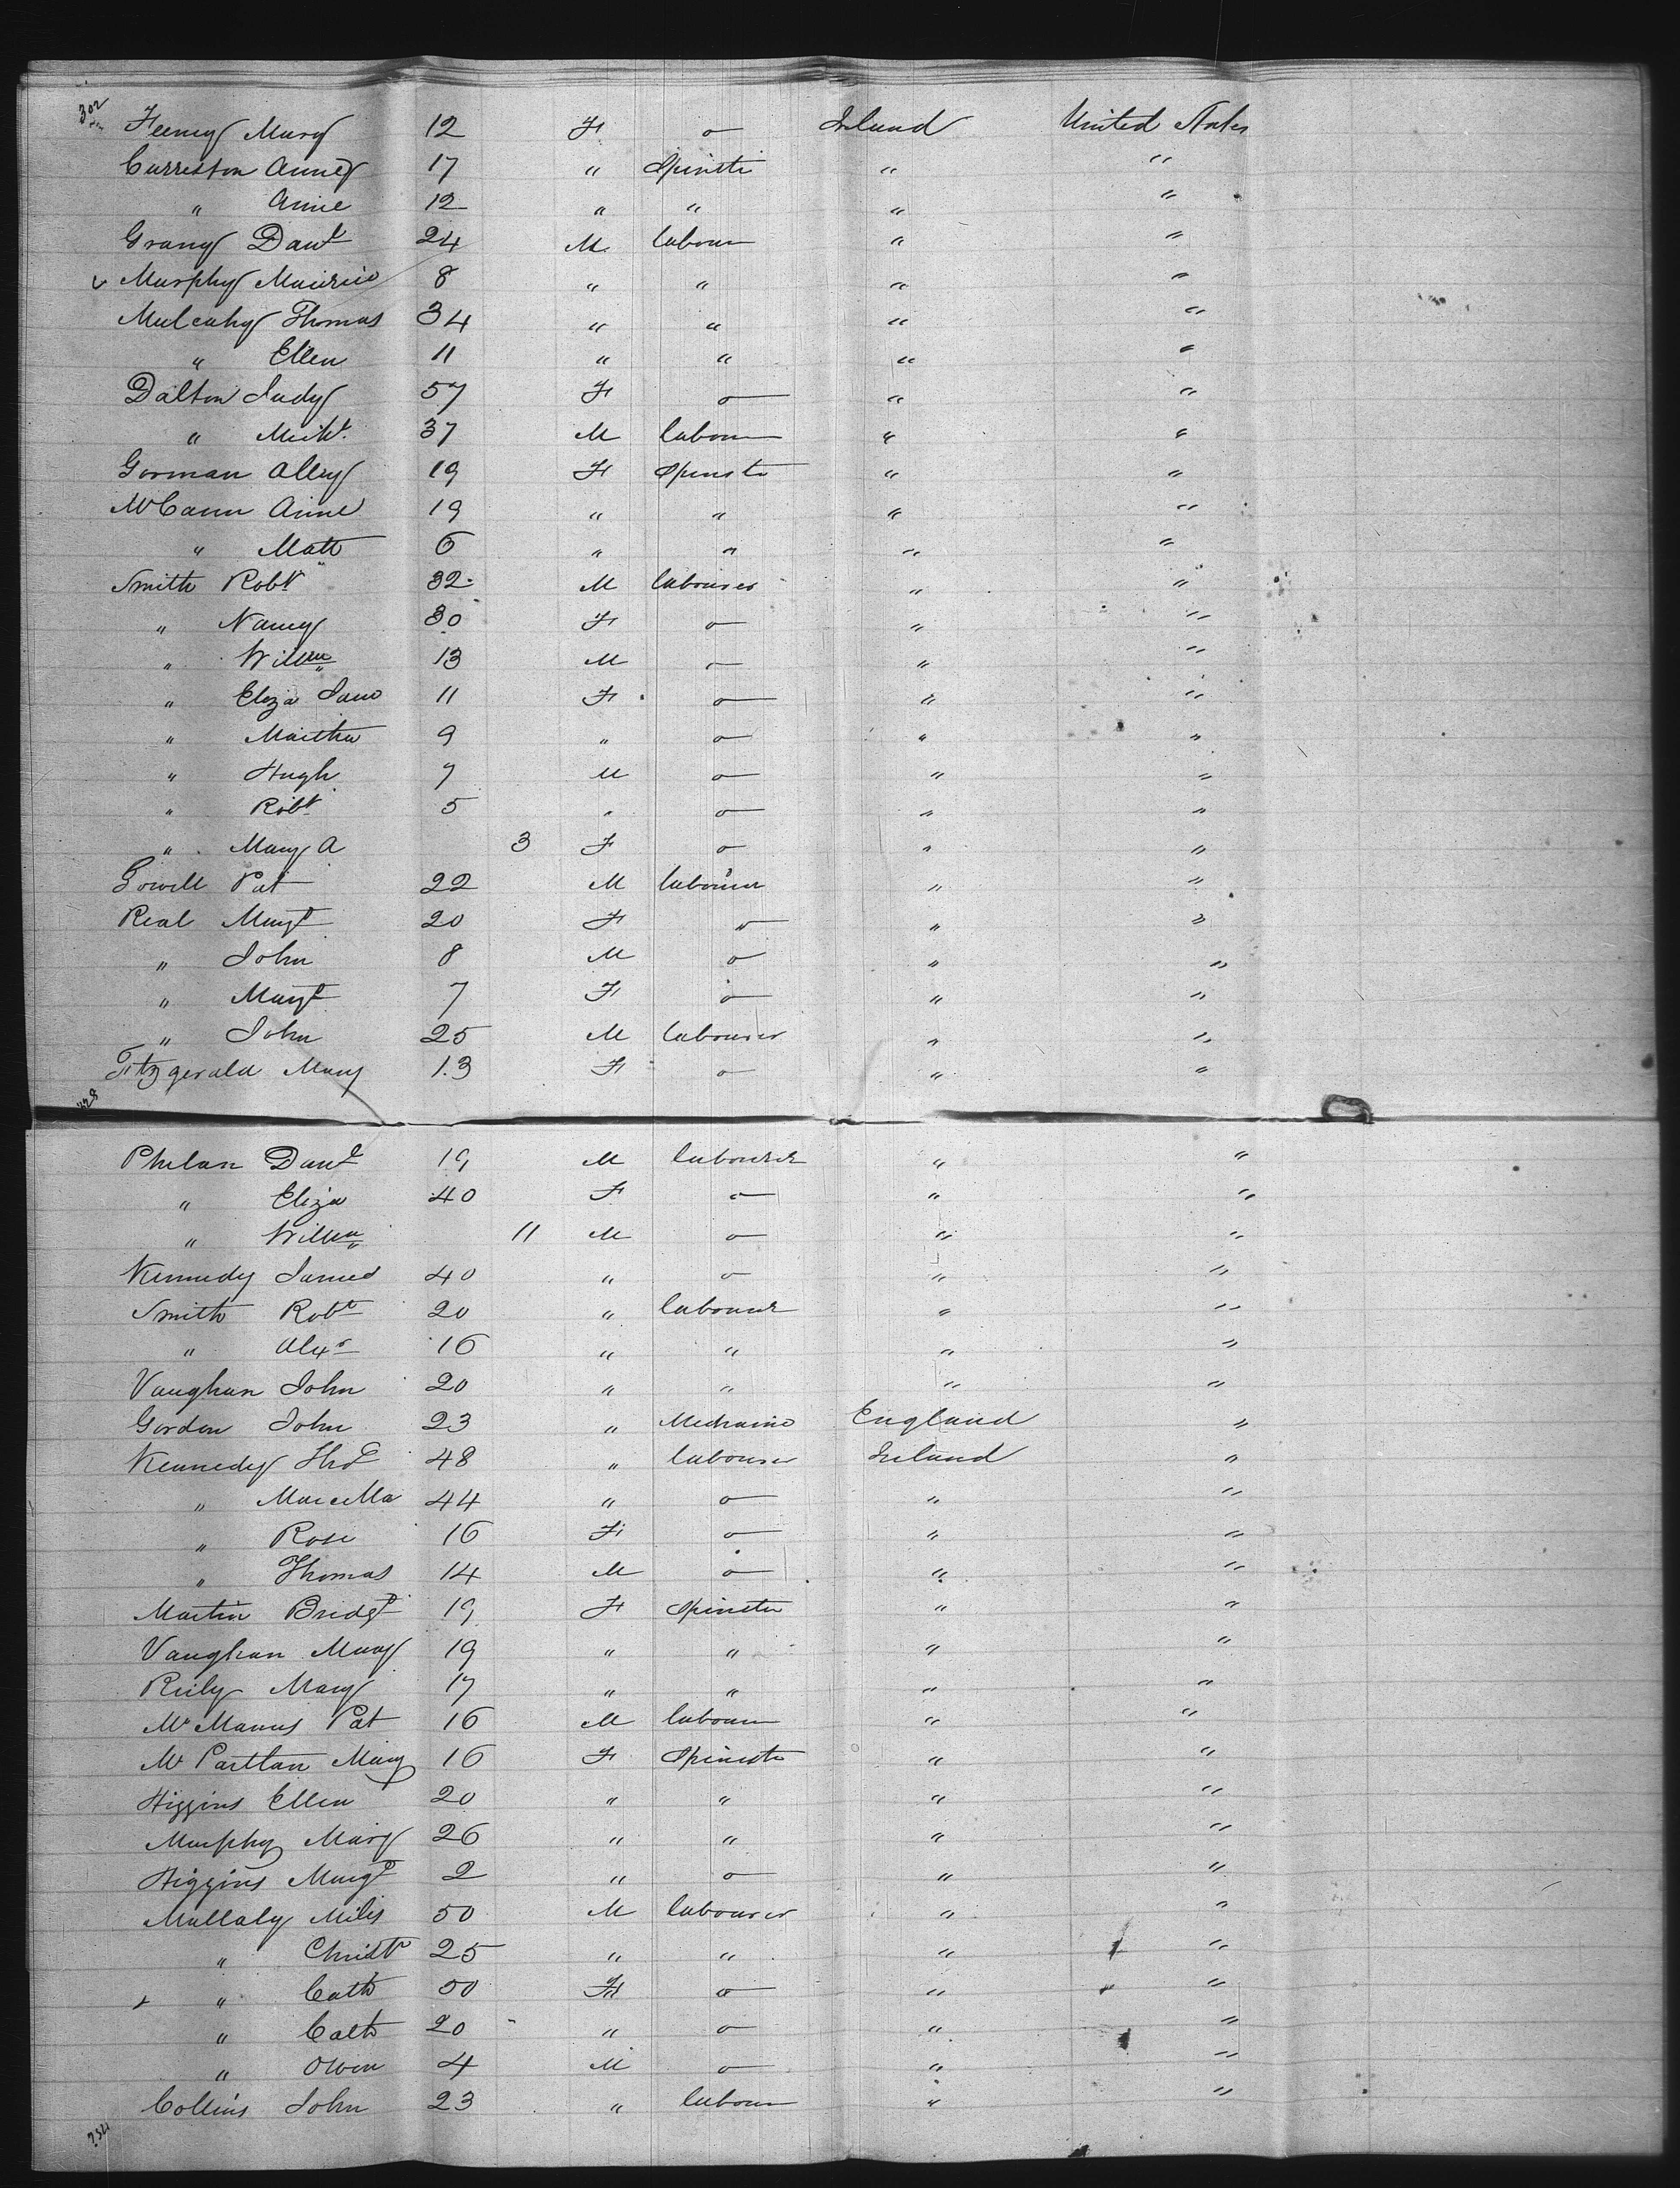 302
Feeney Mary 12 F o Ireland United States
Curreston Anney 17 " Spinstr " "
" Anne 12 " " " "
Grany Danl 24 M labour " "
Murphy Maurice 8 " " " "
Mulcahy Thomas 34 " " " "
" Ellen 11 " " " "
Dalton Judy 57 F o " "
" Michl. 37 M labour " "
Gorman Alley 19 F Spinstr " "
McCann Anne 19 " " " "
" Matt 6 " " " "
Smith Robt 32 M labourer " "
" Nancy 30 F o " "
" Willm 13 M o " "
" Eliza Jane 11 F o " "
" Martha 9 " o " "
" Hugh 7 M o " "
" Robt 5 " o " "
" Mary A 3 F o " "
Powell Pat 22 M labourer " "
Real Margt 20 F " " "
" John 8 M o " "
" Margt 7 F o " "
" John 25 M labourer " "
Fitzgerald Mary 13 F o " "
328
Phelan Danl 19 M labourer " "
" Eliza 40 F o " "
" Willm 11 M o " "
Kennedy James 40 " o " "
Smith Robt 20 " labourer " "
" Alexr 16 " " " "
Vaughan John 20 " " " "
Gordon John 23 " Mechanic England "
Kennedy Thos 48 " labourer Ireland "
" Marcella 44 " o " "
" Rose 16 F o " "
" Thomas 14 M o " "
Martin Bridgt 19 F Spinster " "
Vaughan Mary 19 " " " "
Reily Mary 17 " " " "
McManus Pat 16 M labour " "
McPartlan Mary 16 F Spinstr " "
Higgins Ellen 20 " " " "
Murphy Mary 26 " " " "
Higgins Margt 2 " o " "
Mullaly Miles 50 M labourer " "
" Christr 25 " " " "
+ " Cath 50 F o " "
" Cath 20 " o " "
" Owen 4 M o " "
Collins John 23 " labour " "
354